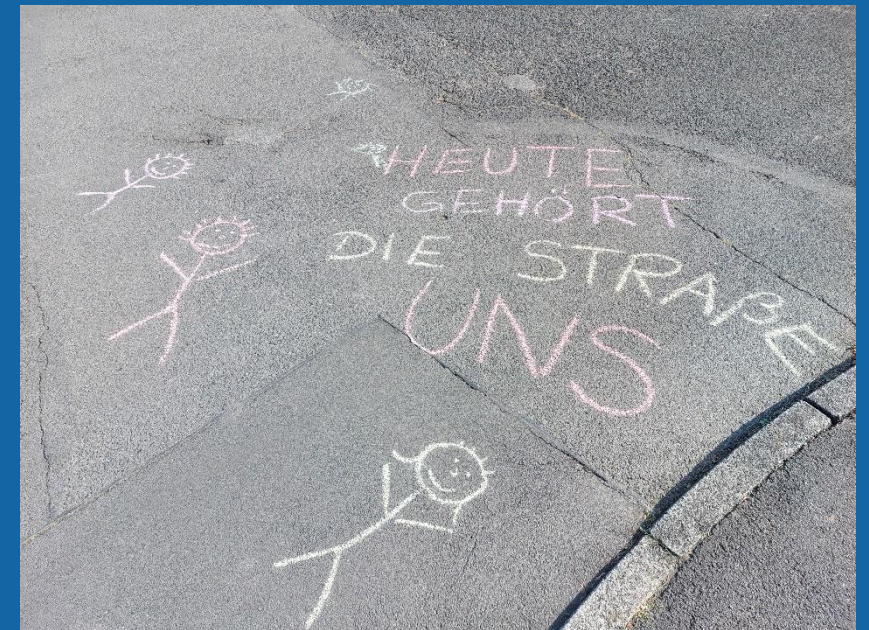 HEUTE
GEHÖRT
DIE STRAßE
UNS